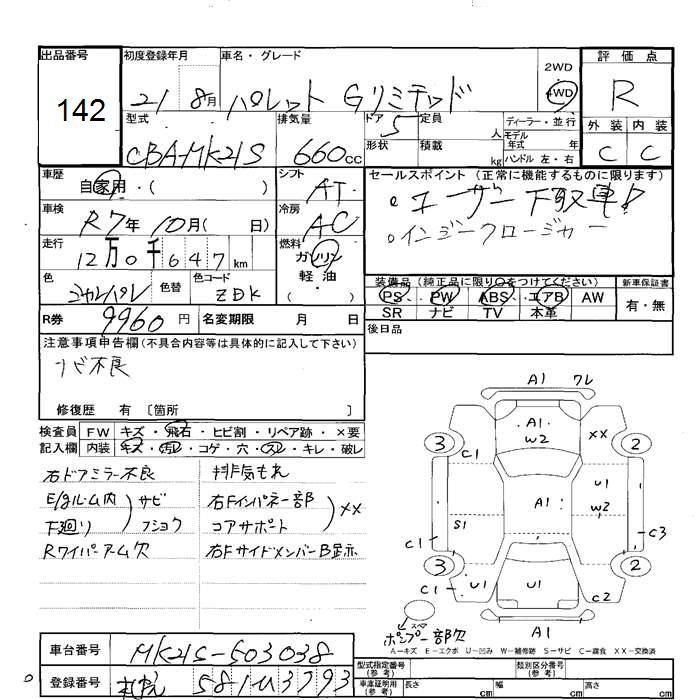 出品番号 初度登録年月 車名・グレード 2WD 評価点
142 21 8月 パレット Gリミテッド 4WD R
型式 排気量 ドア 5 定員 人 ディーラー・並行 外装 内装
CBA-MK21S 660cc 形状 積載 kg モデル年式 年 ハンドル 左・右 C C
車歴 自家用・( ) シフト AT セールスポイント(正常に機能するものに限ります)
車検 R7年 10月( 日) 冷房 AC ユーザー下取車!
走行 12万0千647km 燃料 ガソリン 軽油 ( ) インジークロージャー
色 色替 色コード ZDK 装備品(純正品に限り○をつけてください) 新車保証書
PS・PW・ABS・エアB・AW 有・無
SR・ナビ・TV・本革
R券 9960円 名変期限 月 日 後日品
注意事項申告欄(不具合内容等は具体的に記入して下さい)
ナビ不良
修復歴 有 〔箇所 〕
検査員 FW キズ・飛石・ヒビ割・リペア跡・×要
記入欄 内装 キズ・汚レ・コゲ・穴・スレ・キレ・破レ
右ドアミラー不良 排気もれ
E/gルーム内 サビ 右Fインパネ一部 XX
下廻り フショク コアサポート
Rワイパーアーム欠 右Fサイドメンバー
A1 ワレ
A1 W2 XX
3 C1 2
A1 U1 W2
S1 C1 C3
3 C1 U1 U1 C2 2
A1
一部欠
A-キズ E-エクボ U-凹み W-補修跡 S-サビ C-腐食 XX-交換済
車台番号 MK21S-503038 型式指定番号(参考) 類別区分番号(参考)
登録番号 581 3793 車庫証明用(参考) 長さ cm 幅 cm 高さ cm